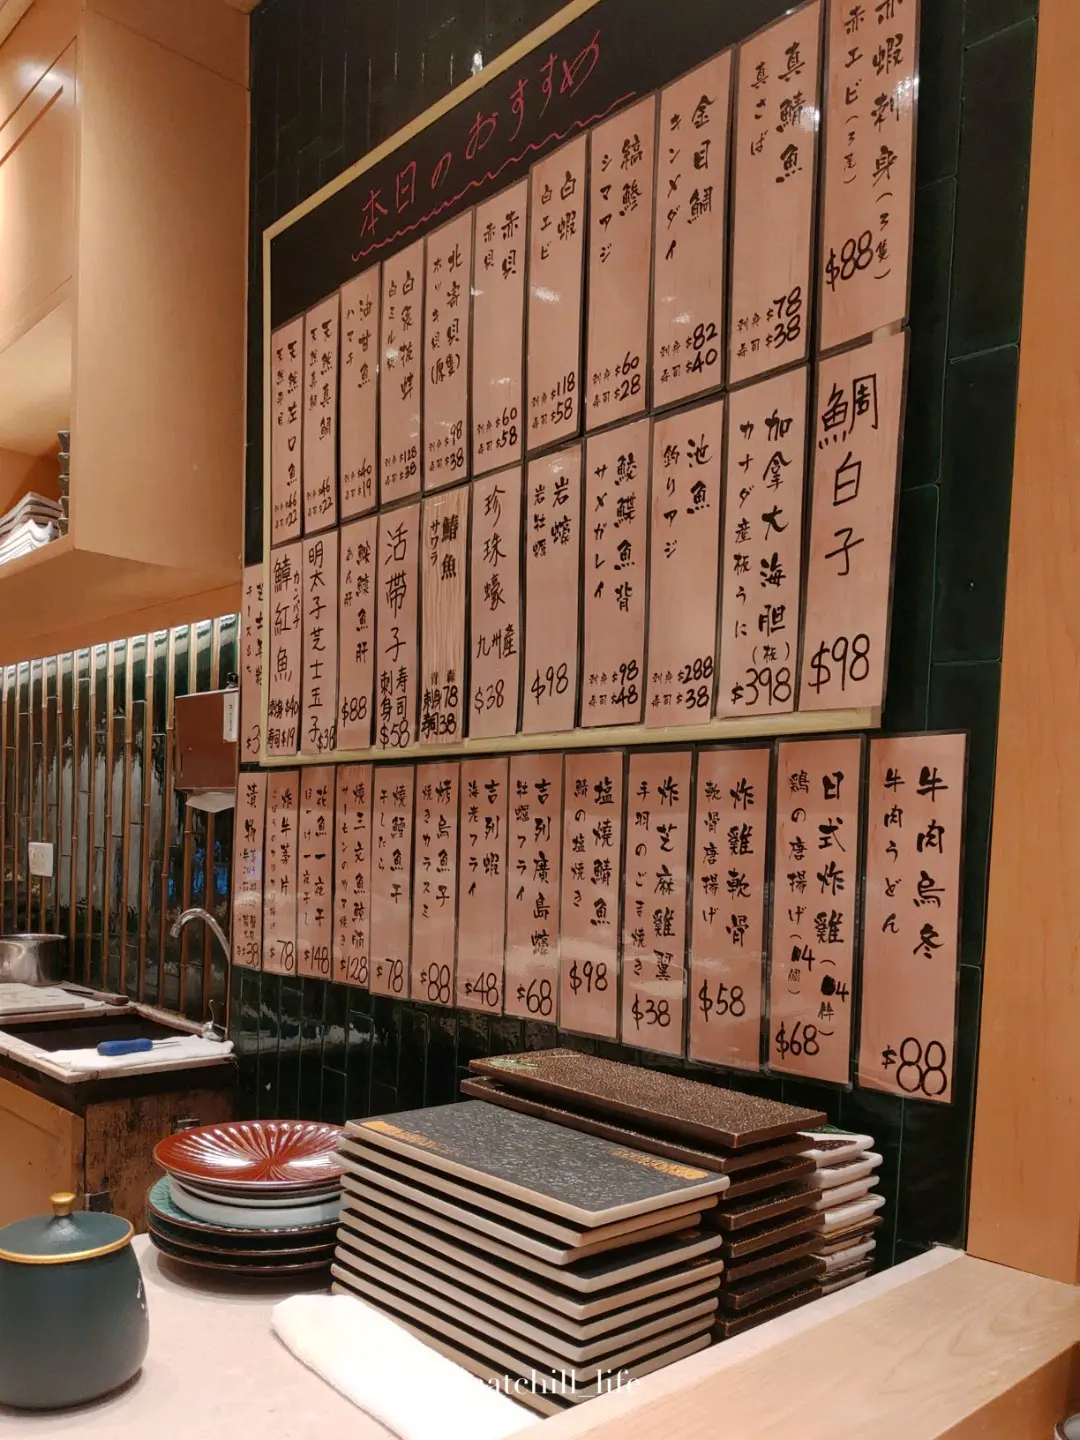 本日のおすすめ
赤蝦刺身(3隻)
赤エビ(3尾)
$88
真鯖魚
真さば
刺身 $78
寿司 $38
金目鯛
キンメダイ
刺身 $82
寿司 $40
縞鰺
シマアジ
刺身 $60
寿司 $28
白蝦
白エビ
刺身 $118
寿司 $58
赤貝
赤貝
刺身 $60
寿司 $58
北寄貝(原隻)
ホッキ貝
刺身 $98
寿司 $38
白象拔蚌
白ミル貝
刺身 $128
寿司 $38
油甘魚
ハマチ
刺身 $40
寿司 $19
天然真鯛
天然真鯛
刺身 $46
寿司 $22
天然左口魚
刺身 $46
寿司 $22
鯛白子
$98
加拿大海胆(板)
カナダ産板うに
$398
池魚
釣りアジ
刺身 $288
寿司 $38
鮫鰈魚背
サメガレイ
刺身 $98
寿司 $48
岩蠔
岩牡蠣
$98
珍珠蠔
九州産
$38
鰆魚
サワラ
刺身 78
寿司 38
活帶子
刺身 寿司
$58
鮟鱇魚肝
あん肝
$88
明太子芝士玉子
$38
鱆紅魚
カンパチ
刺身 $40
寿司 $19
牛肉烏冬
牛肉うどん
$88
日式炸雞(4件)
鶏の唐揚げ(4個)
$68
炸雞軟骨
軟骨唐揚げ
$58
炸芝麻雞翼
手羽のごま焼き
$38
塩燒鯖魚
鯖の塩焼き
$98
吉列廣島蠔
牡蠣フライ
$68
吉列蝦
海老フライ
$48
烤烏魚子
焼きカラスミ
$88
燒鱈魚干
干したら
$78
燒三文魚鮫腩
サーモンのカマ焼き
$128
花魚一夜干
ほっけ一夜干し
$148
炸牛蒡片
$78
漬物
$38